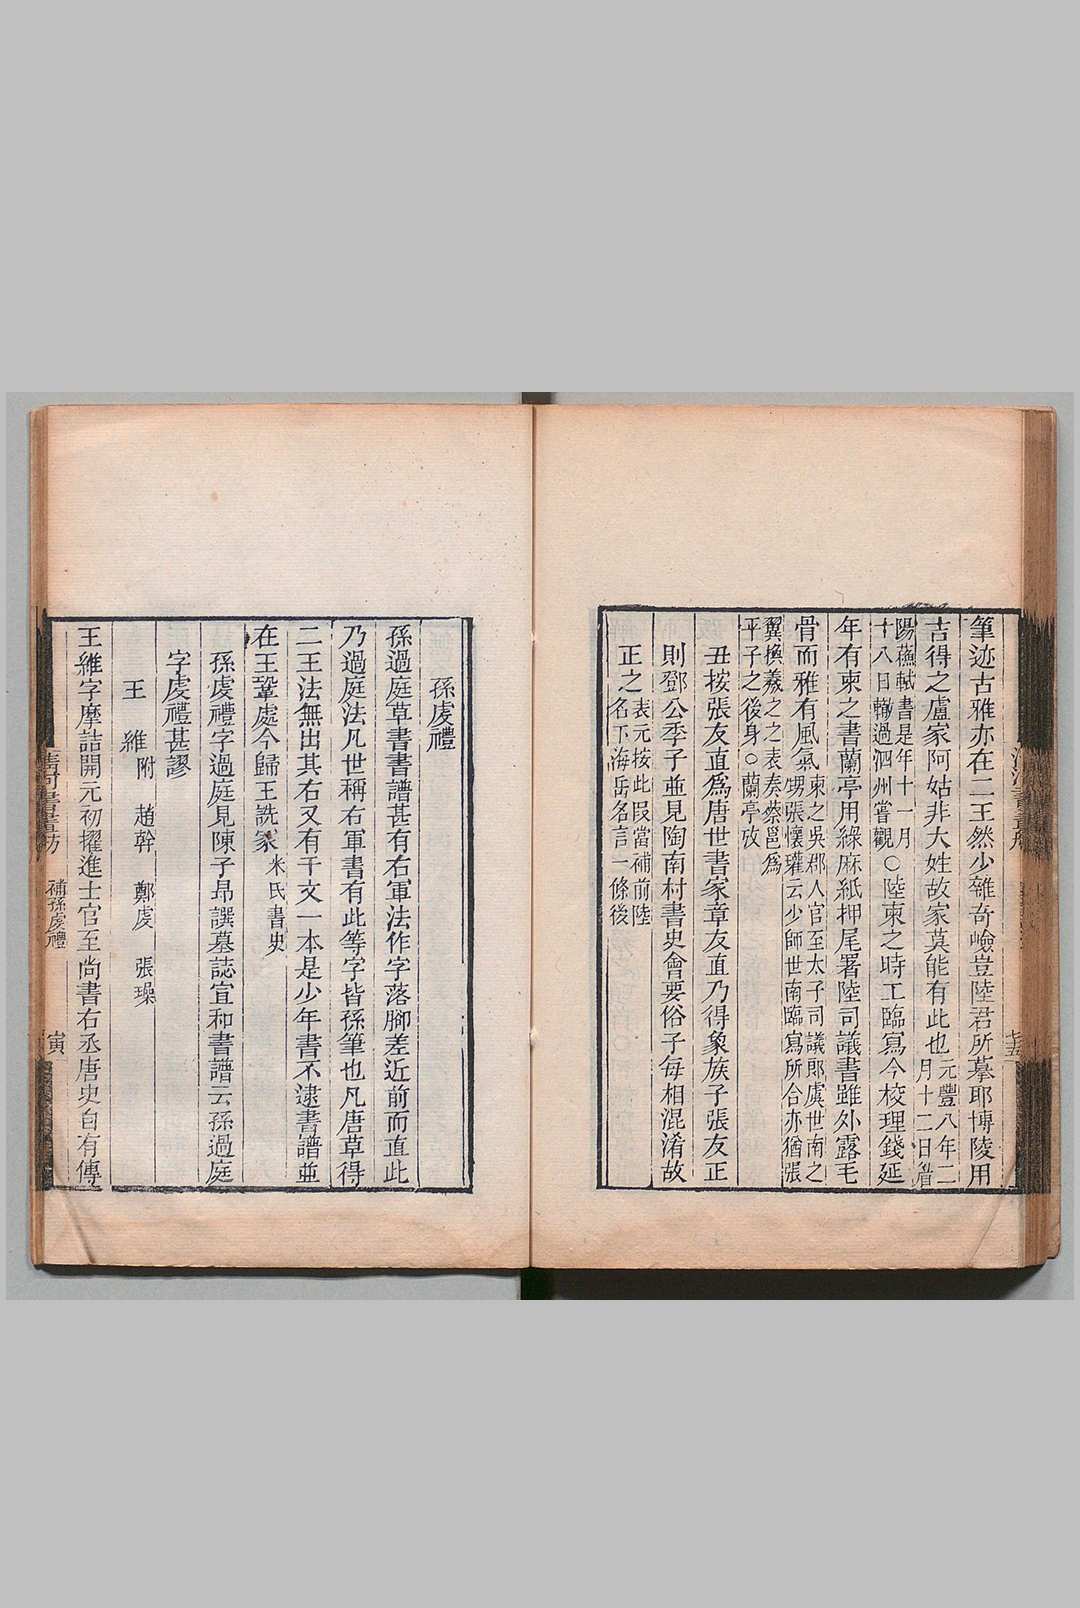 筆迹古雅亦在二王然少雜奇嶮豈陸君所摹耶博陵用
吉得之盧家阿姑非大姓故家莫能有此也元豐八年二月十二日眉
陽蘓軾書是年十一月十八日轍過泗州嘗觀○陸柬之時工臨寫今校理錢延
年有柬之書蘭亭用綠麻紙押尾署陸司議書雖外露毛
骨而雅有風氣柬之吳郡人官至太子司議郎虞世南之甥張懷瓘云少師世南臨寫所合亦猶張
翼換羲之之表奏蔡邕爲平子之後身○蘭亭攷
丑按張友直爲唐世書家章友直乃得象族子張友正
則鄧公季子並見陶南村書史會要俗子每相混淆故
正之表元按此段當補前陸名下海岳名言一條後
孫虔禮
孫過庭草書書譜甚有右軍法作字落腳差近前而直此
乃過庭法凡世稱右軍書有此等字皆孫筆也凡唐草得
二王法無出其右又有千文一本是少年書不逮書譜並
在王鞏處今歸王詵家米氏書史
孫虔禮字過庭見陳子昂譔墓誌宣和書譜云孫過庭
字虔禮甚謬
王維附趙幹 鄭虔 張璪
王維字摩詰開元初擢進士官至尚書右丞唐史自有傳
清河書畫舫 補孫虔禮 寅